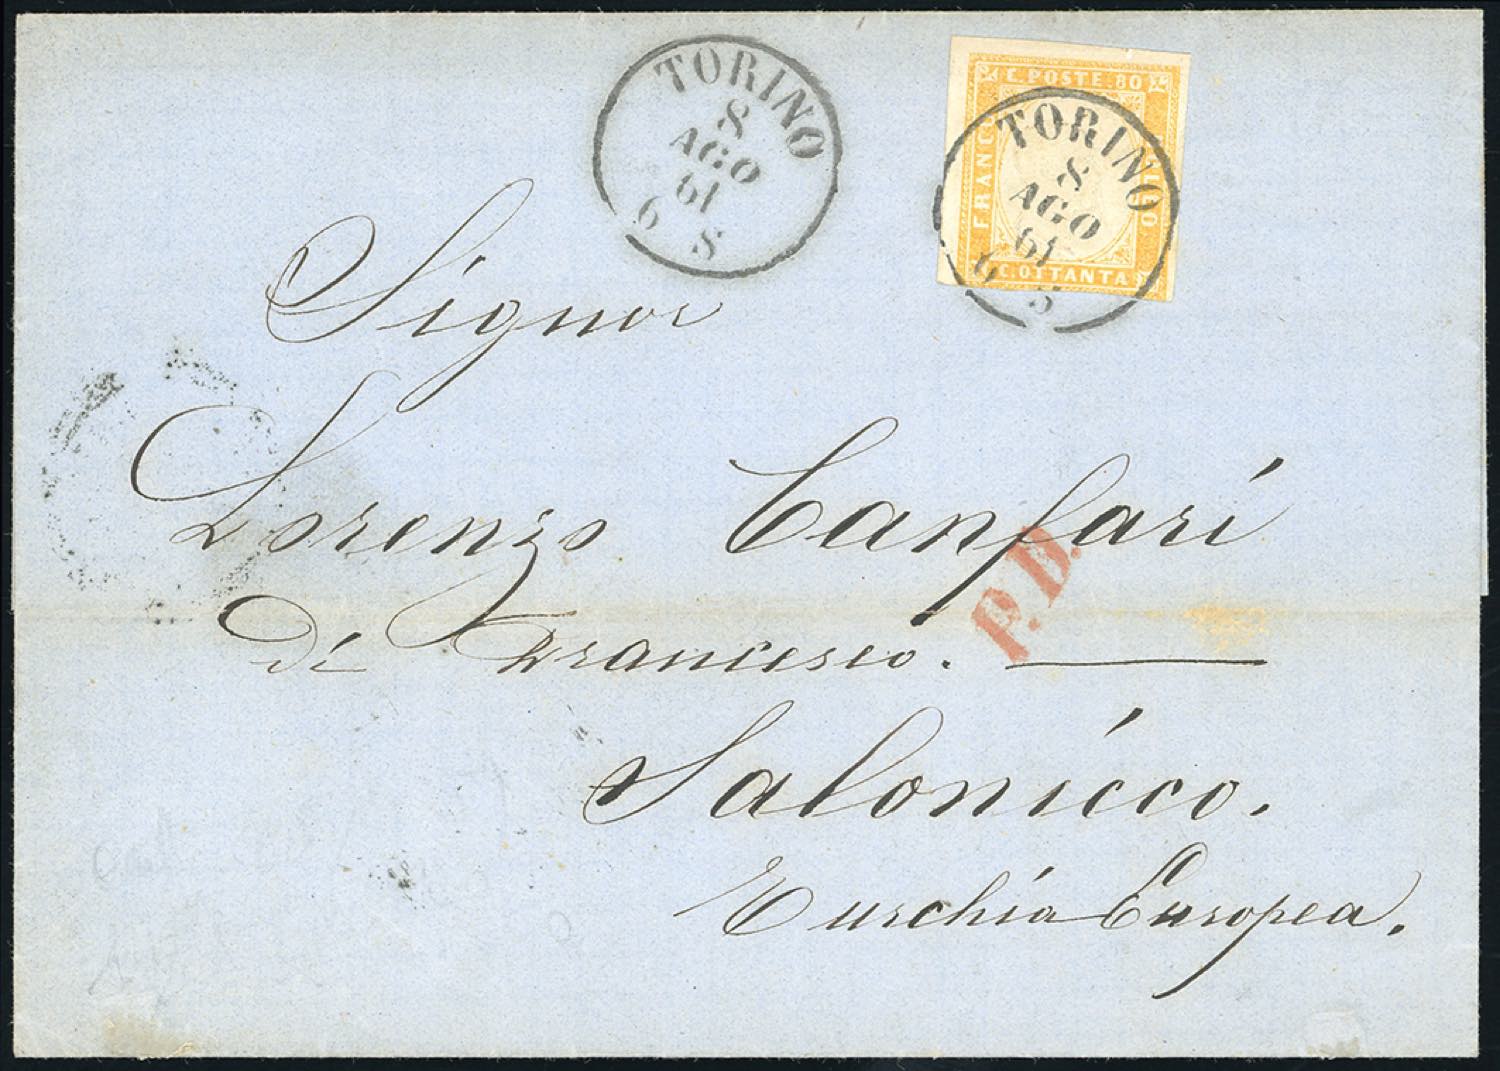 TORINO
8
AGO
61
6 S
C. POSTE. 80
FRANCO
BOLLO
C. OTTANTA
TORINO
8
AGO
61
6 S
Signor
Lorenzo Canfari
di Francesco.
P.D.
Salonicco.
Turchia Europea.